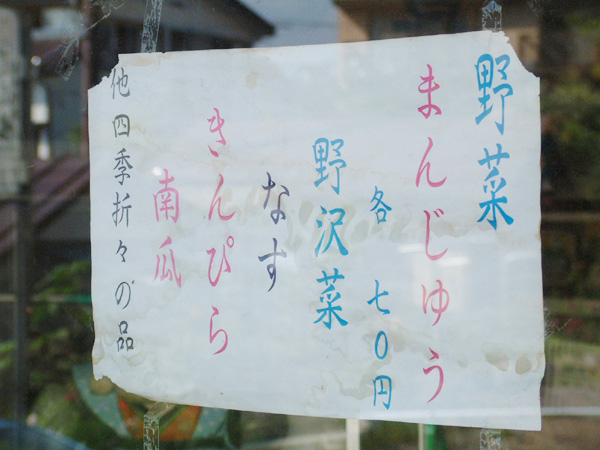 野菜
まんじゅう
各 七〇円
野沢菜
なす
きんぴら
南瓜
他四季折々の品